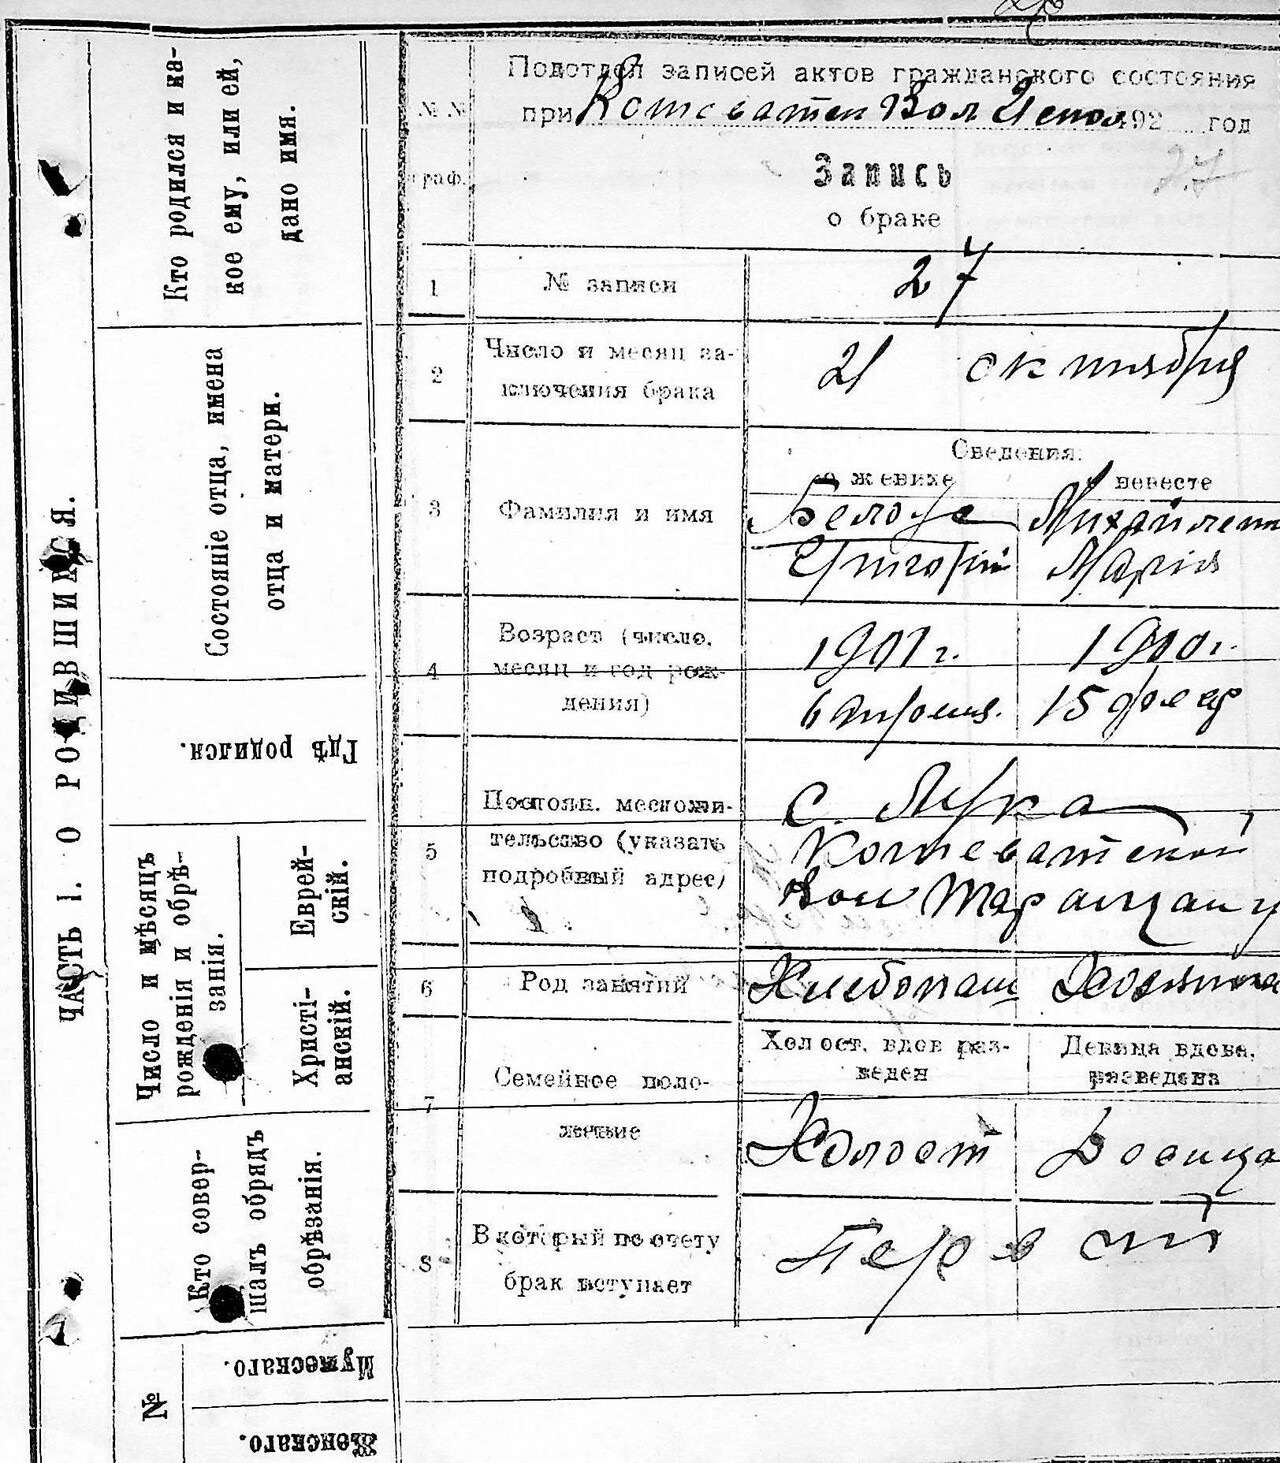 ЧАСТЬ I. О РОДИВШИХСЯ.
Кто родился и ка-
кое ему, или ей,
дано имя.
Состояніе отца, имена
отца и матери.
Гдѣ родился.
Число и мѣсяцъ
рожденія и обрѣ-
занія.
Еврей-
скій.
Христі-
анскій.
Кто совер-
шалъ обрядъ
обрѣзанія.
№
Мужескаго.
Женскаго.
№ №
граф.
Подотдел записей актов гражданского состояния
при Вол 192 год
Запись
27
о браке
1 № записи 27
2 Число и месяц за-
ключения брака 21 октября
Сведения:
о женихе о невесте
3 Фамилия и имя
Григорій Марія
4 Возраст (число,
месяц и год рож-
дения)
1901 г. 1900 г.
6 апреля. 15
5 Постоян. местожи-
тельство (указать
подробный адрес)
с. Лука
6 Род занятий Хлебопаш Хозяйка
7 Семейное поло-
жение
Холост. вдов раз-
веден
Девица вдова,
разведена
Холост Девица
8 В который по счету
брак вступает
Первый